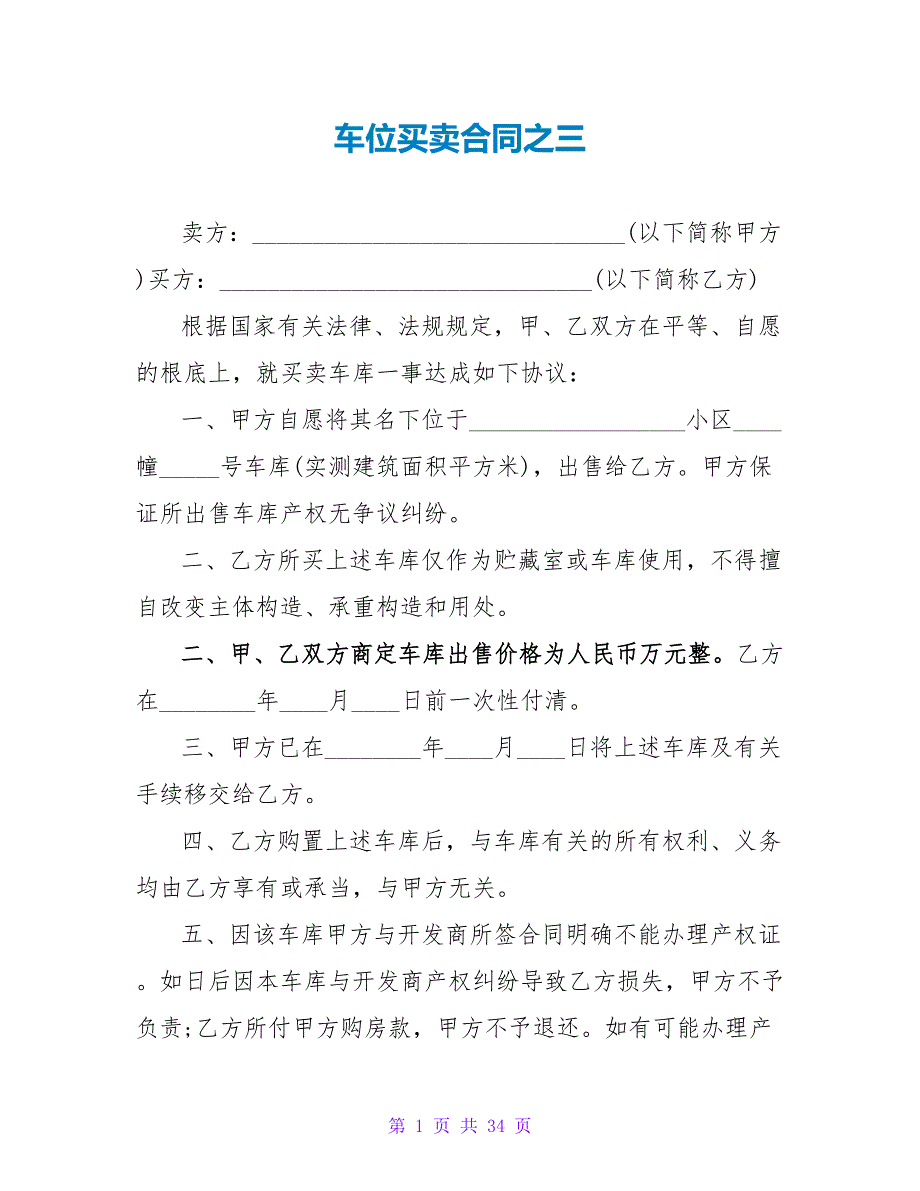 车位买卖合同之三
卖方：_______________________________(以下简称甲方
)买方：_______________________________(以下简称乙方)
根据国家有关法律、法规规定，甲、乙双方在平等、自愿
的根底上，就买卖车库一事达成如下协议：
一、甲方自愿将其名下位于__________________小区____
幢_____号车库(实测建筑面积平方米)，出售给乙方。甲方保
证所出售车库产权无争议纠纷。
二、乙方所买上述车库仅作为贮藏室或车库使用，不得擅
自改变主体构造、承重构造和用处。
二、甲、乙双方商定车库出售价格为人民币万元整。乙方
在________年____月____日前一次性付清。
三、甲方已在________年____月____日将上述车库及有关
手续移交给乙方。
四、乙方购置上述车库后，与车库有关的所有权利、义务
均由乙方享有或承当，与甲方无关。
五、因该车库甲方与开发商所签合同明确不能办理产权证
。如日后因本车库与开发商产权纠纷导致乙方损失，甲方不予
负责;乙方所付甲方购房款，甲方不予退还。如有可能办理产
第 1 页 共 34 页